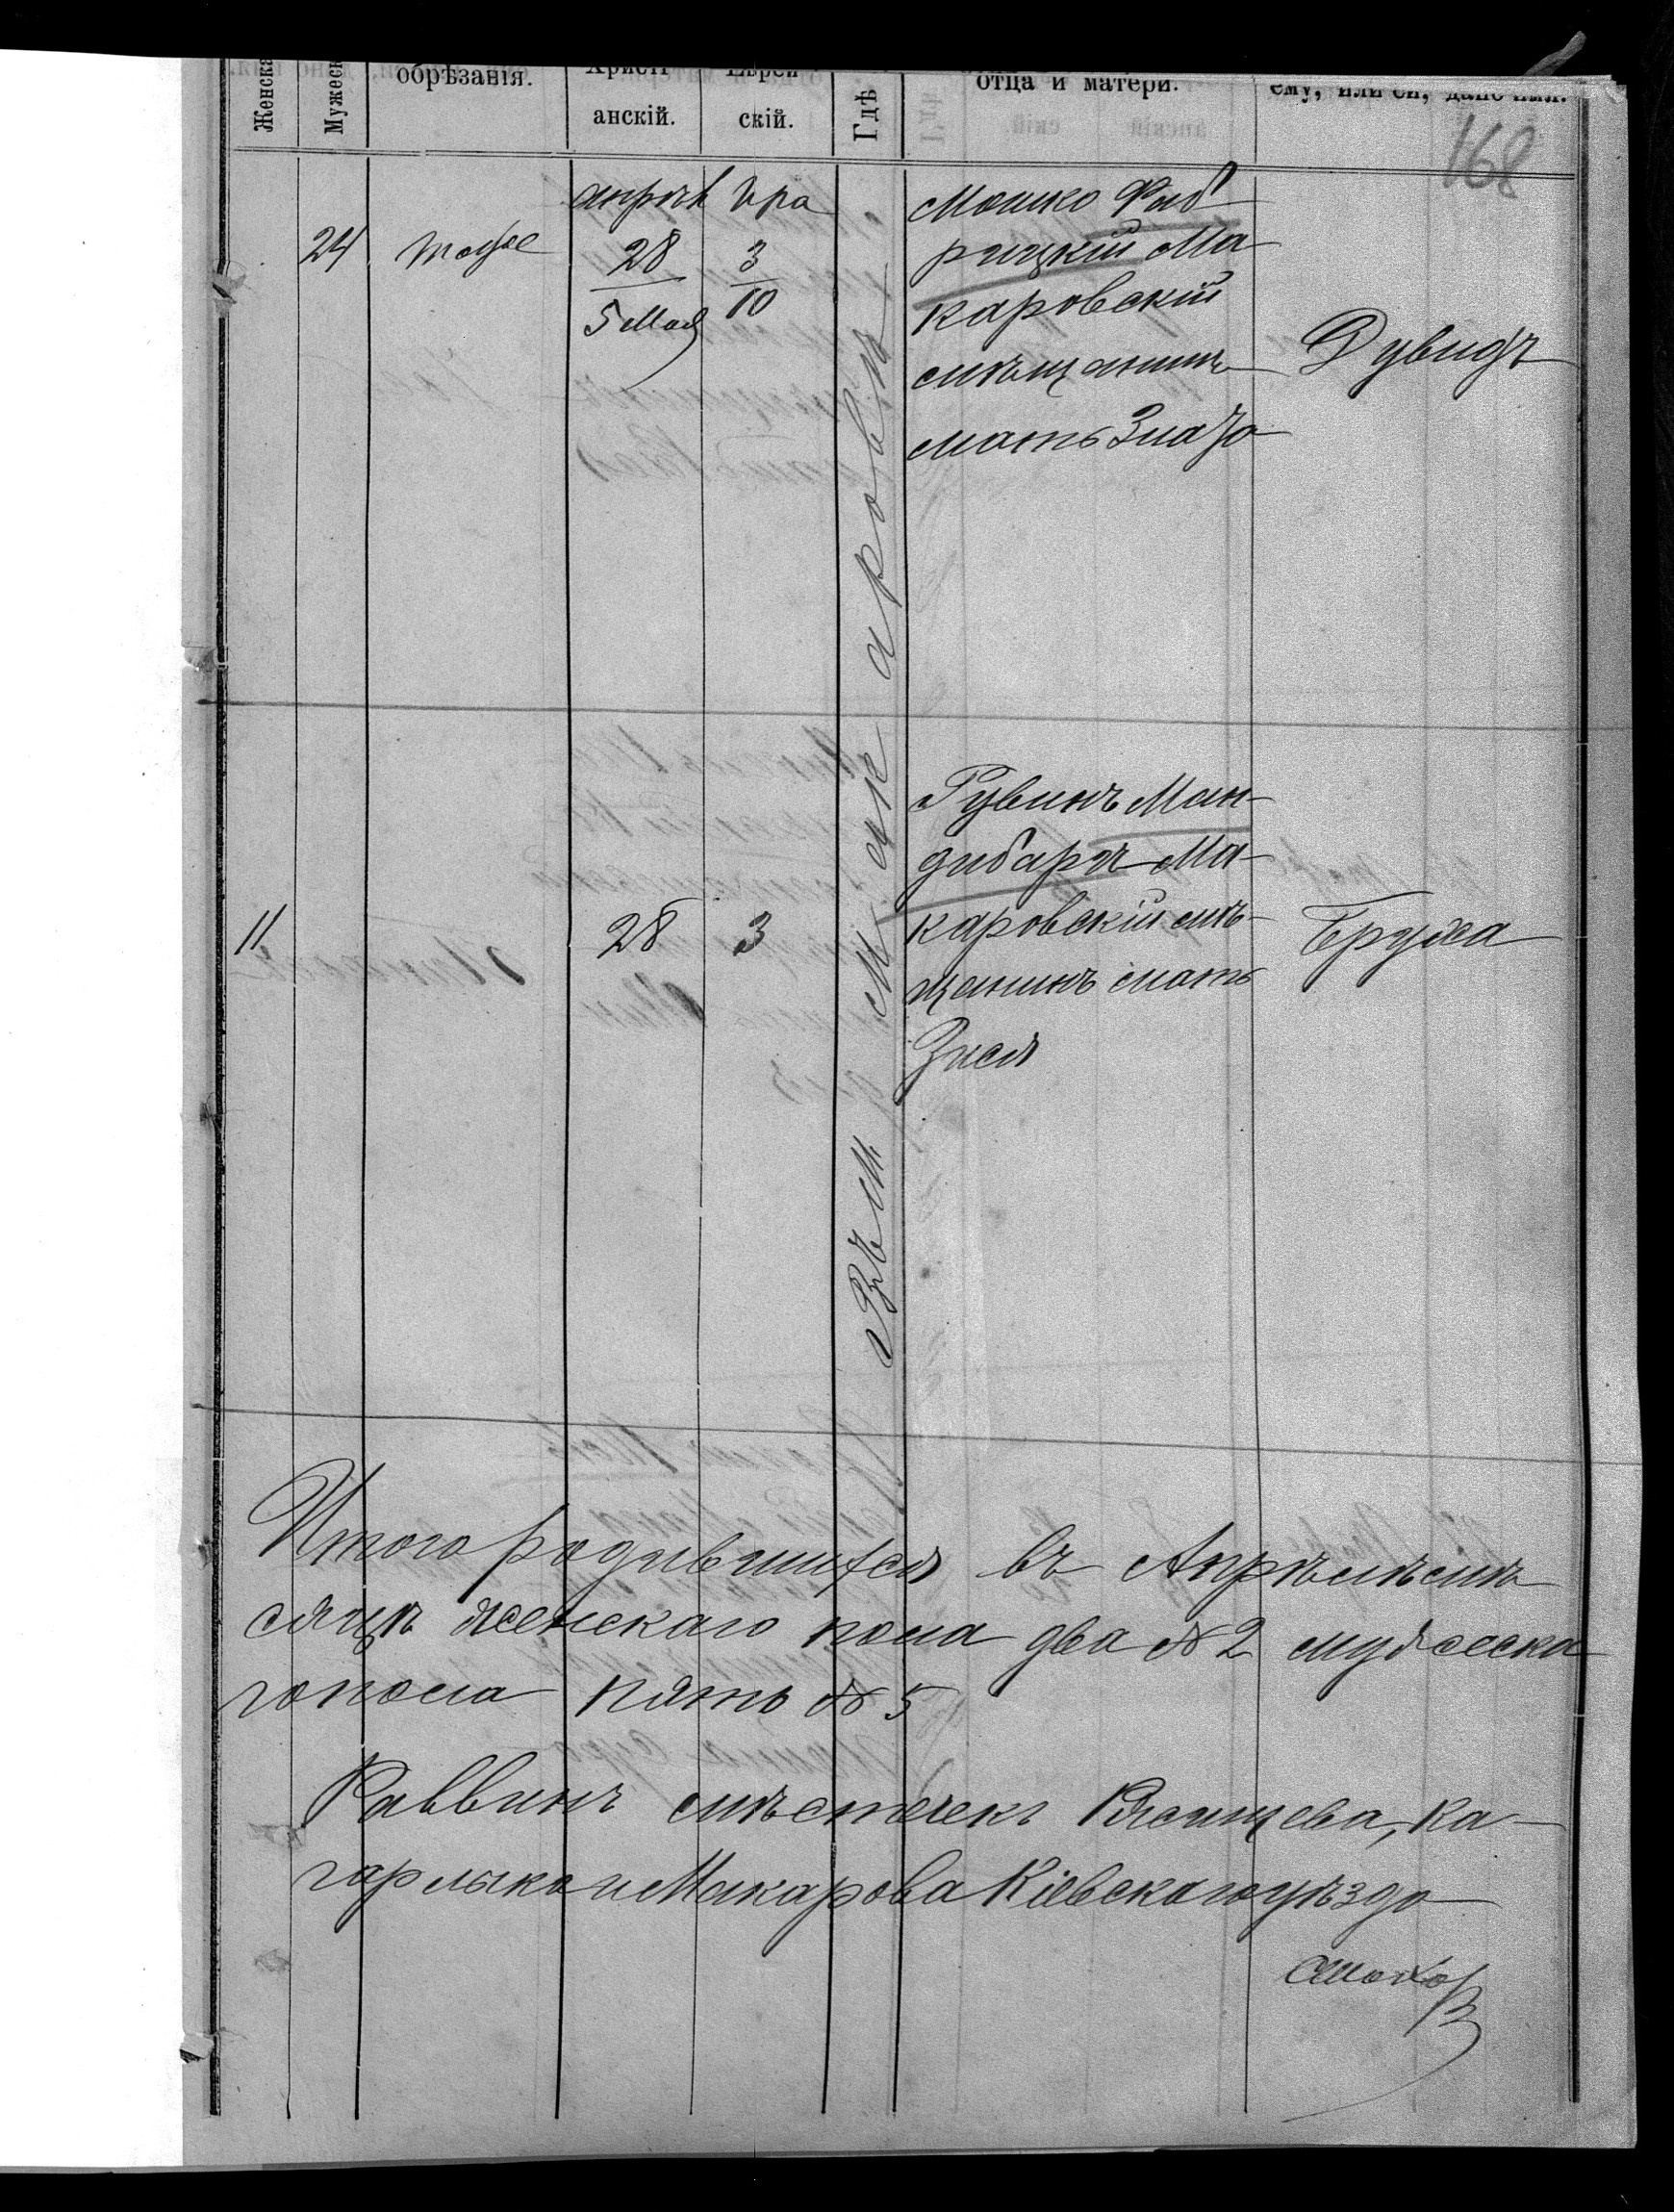 Женска
Мужеск
обрѣзанія.
Христі
анскій.
Еврей
скій.
Гдѣ
отца и матери.
ему, или ей, дано имя.
168
24
тоже
апрѣл
28
5 Мая
Ира
3
10
Мошко Фаб
рицкій Ма
каровскій
мѣщанинъ
мать Злата
Дувидъ
Въ м. Макаровѣ
11
28
3
Рувинъ Ман-
дибаръ Ма-
каровскій мѣ-
щанинъ мать
Зися
Бруха
Итого родившихся въ Апрѣлѣ мѣ
сяцѣ женскаго пола два № 2 мужеска
го пола пять № 5
Раввинъ мѣстечекъ Ржищева, Ка-
гарлыка и Макарова Кіевскаго уѣзда